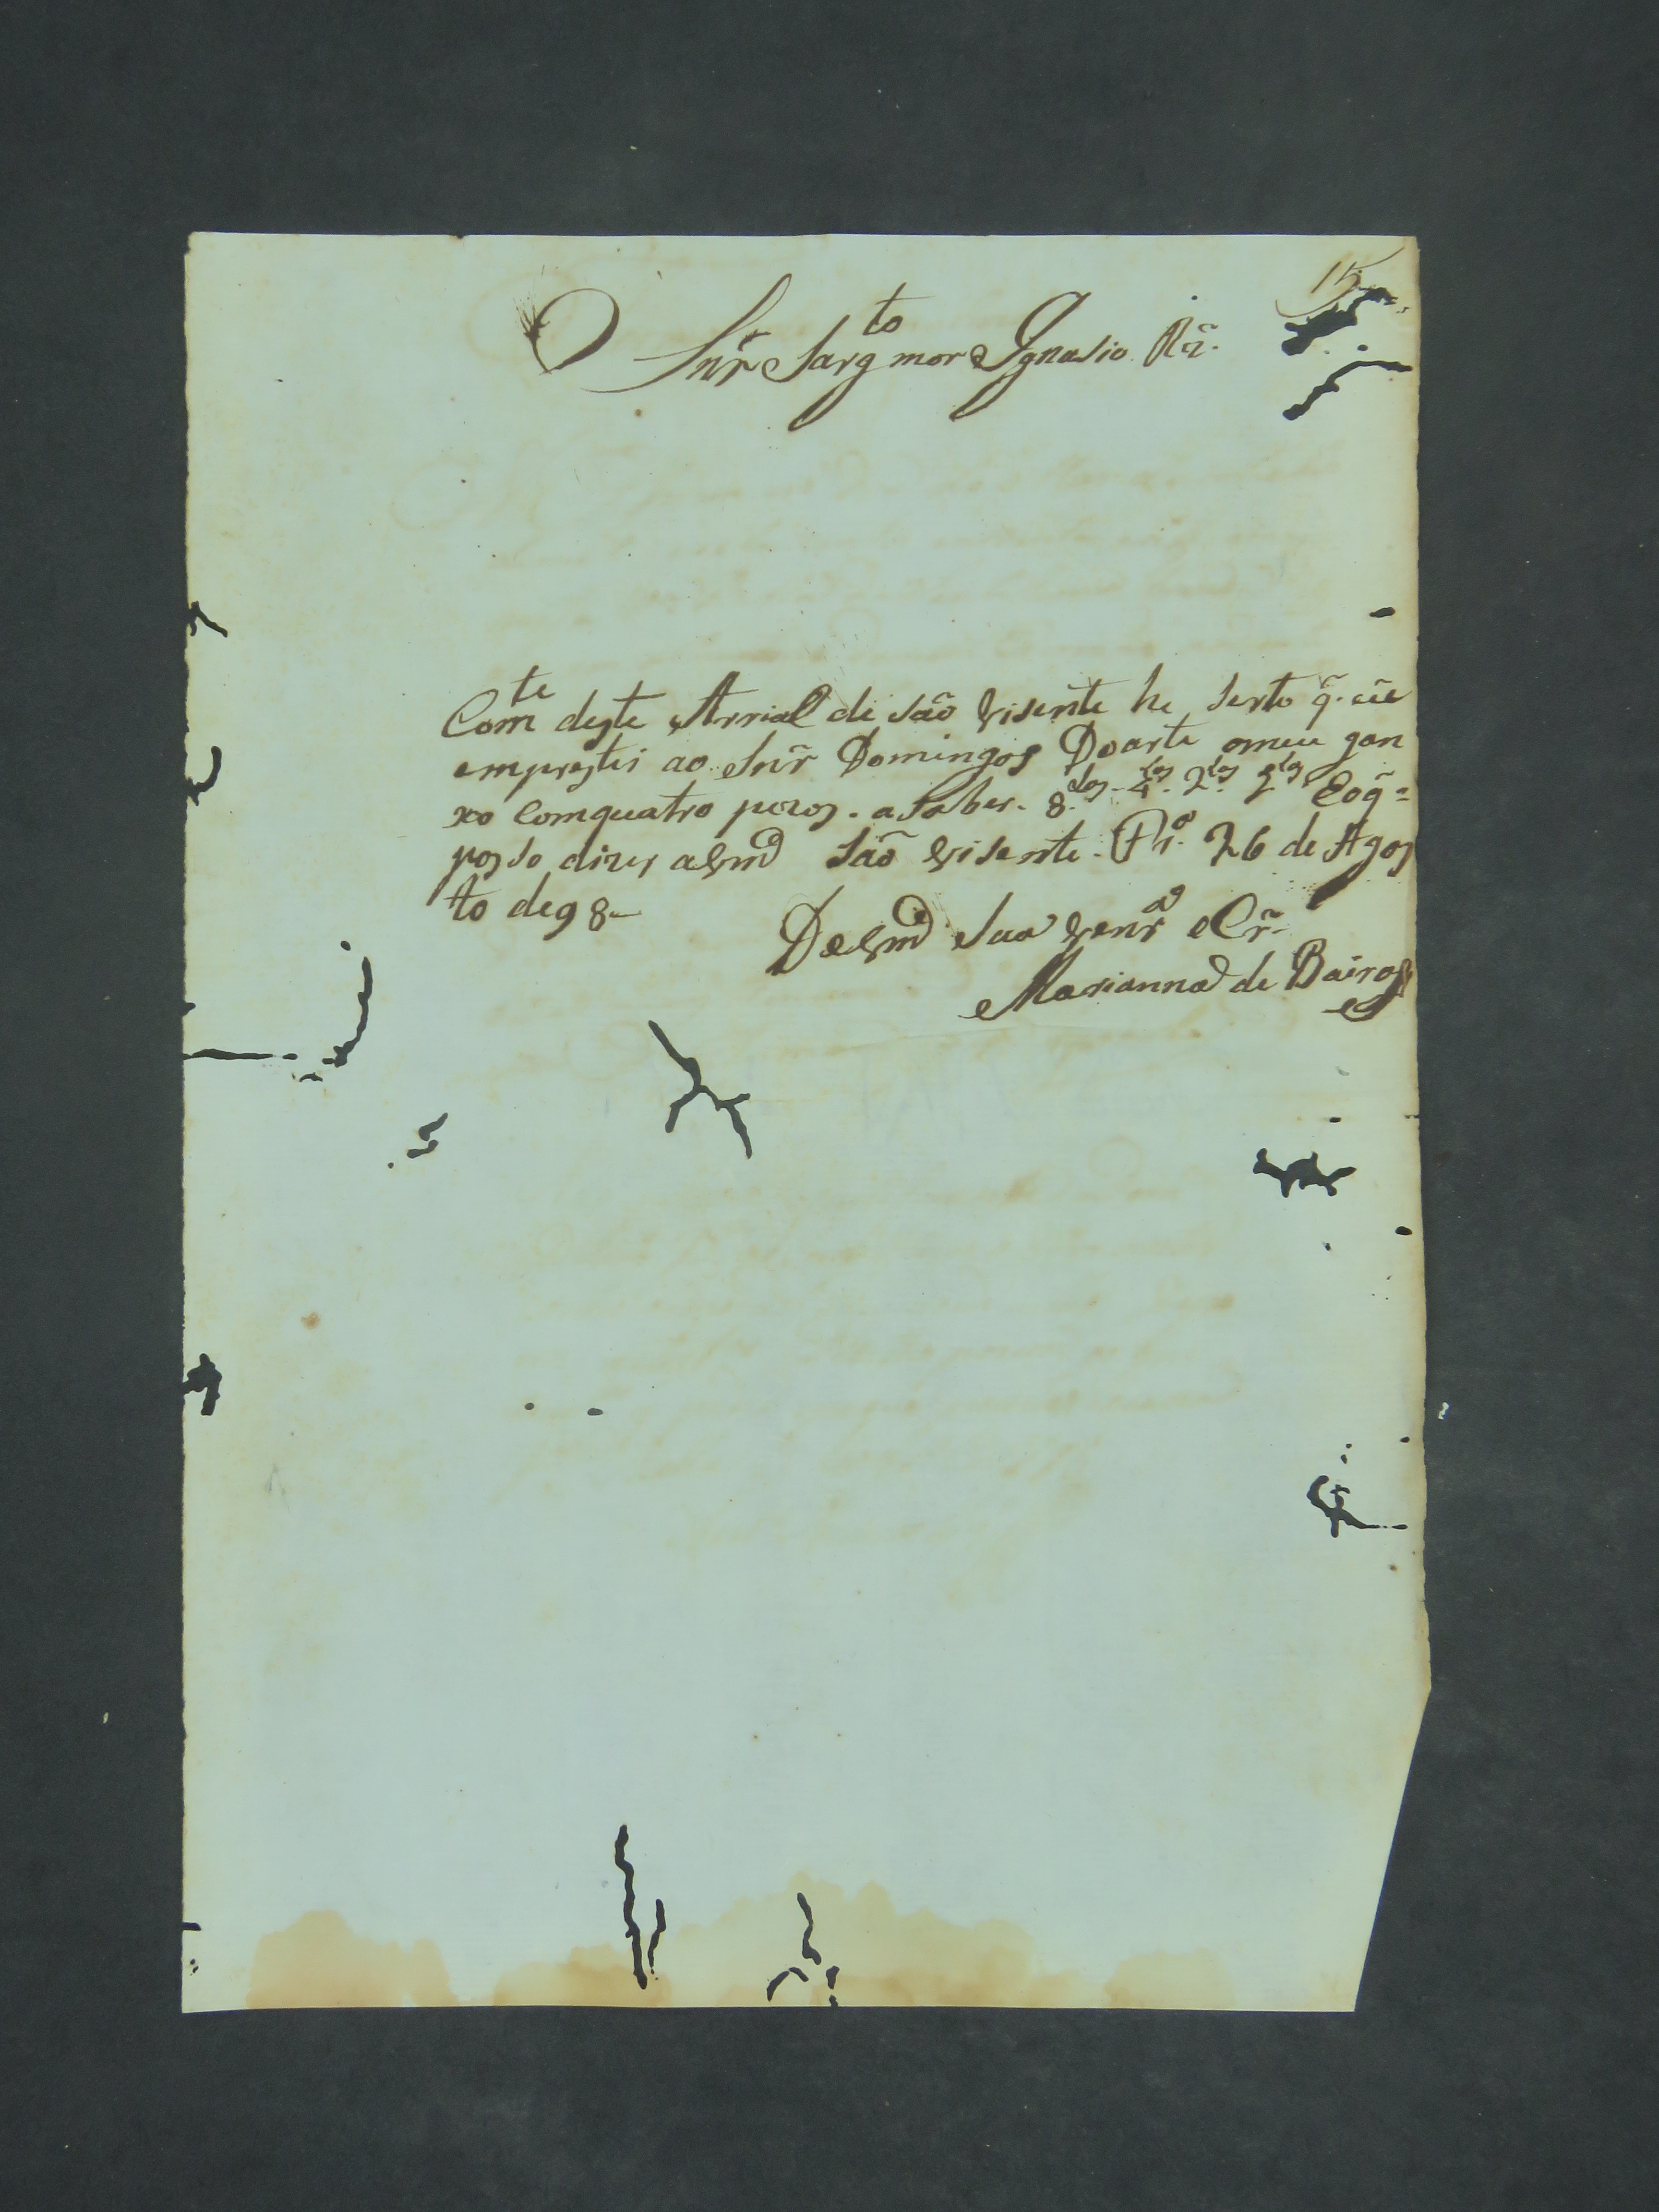 15
Snr̃ Sarg.to mor Ignasio Rĩz.
Com.te deste Arrial de são Visente he serto q̃. eu
emprestei ao Snr̃ Domingos Doarte o meu gan
xo com quatro pezos. a saber. 8.dos - 4.los 2.los 2.los Eoq̃ =
posso dizer a Vm̃d são Visente. Pr.o 26 de Agos
to de 98 —
De Vm̃d sua Venr.a e Cr̃.
Marianna de Bairos